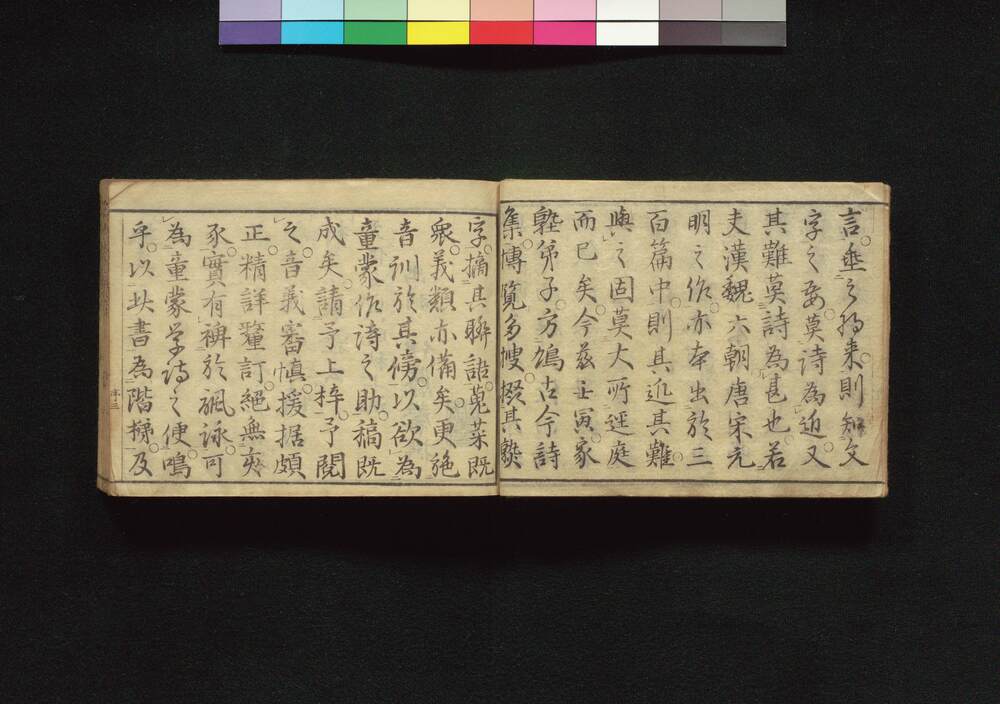 言垂之將来則知文
字之要莫詩為近又
其難莫詩為甚也若
夫漢魏六朝唐宋元
明之作亦本出於三
百篇中則其近其難
與之固莫大所逕庭
而已矣今茲壬寅家
塾弟子方鳩古今詩
集博覧多捜掇其
字摘其聯語蒐菜既
衆義類亦備矣更施
音訓於其傍以欲為
童蒙作詩之助稿既
成矣請予上梓予閲
之音義審慎援据頗
正精詳釐訂絕無夾
豕實有裨於諷詠可
為童蒙学詩之便鳴
乎以此書為階梯及
序三